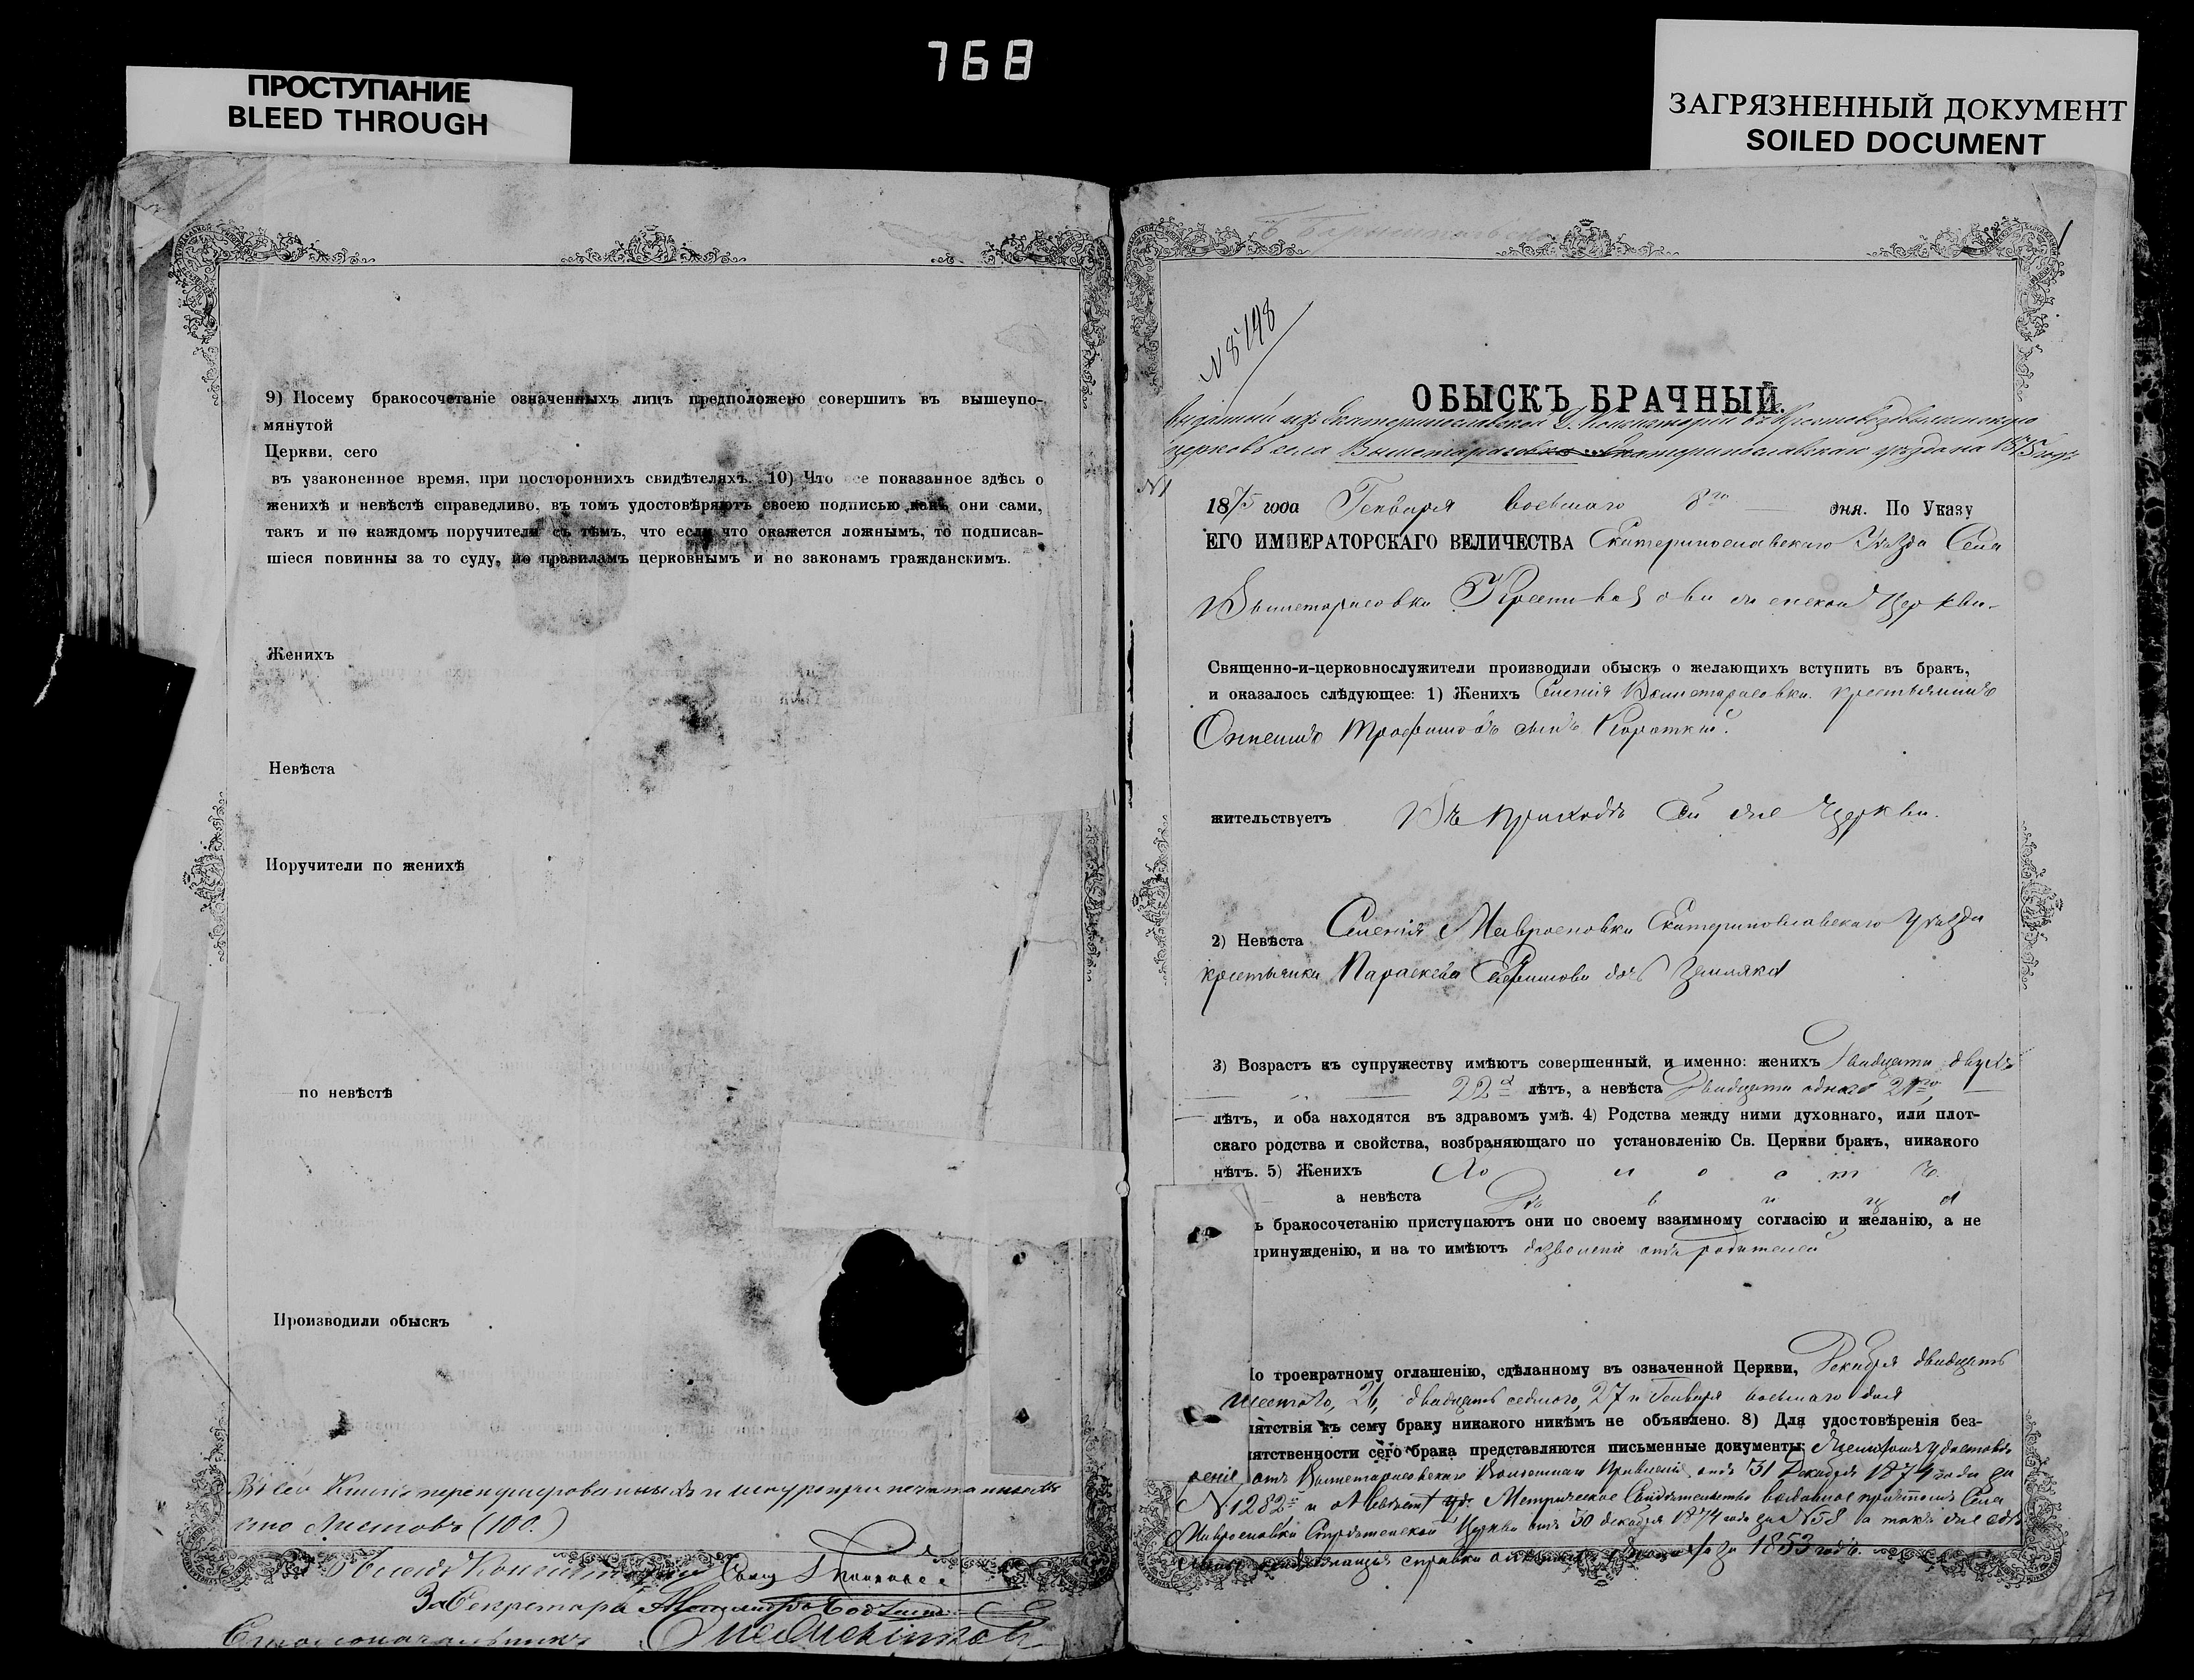 768
ПРОСТУПАНИЕ
BLEED THROUGH
ЗАГРЯЗНЕННЫЙ ДОКУМЕНТ
SOILED DOCUMENT
9) Посему бракосочетаніе означенныхъ лицъ предположено совершить въ вышеупо-
мянутой
Церкви, сего
въ узаконенное время, при постороннихъ свидѣтеляхъ. 10) Что все показанное здѣсь о
женихѣ и невѣстѣ справедливо, въ томъ удостовѣряютъ своею подписью какъ они сами,
такъ и по каждомъ поручители съ тѣмъ, что если что окажется ложнымъ, то подписав-
шіеся повинны за то суду, по правиламъ церковнымъ и по законамъ гражданскимъ.
Женихъ
Невѣста
Поручители по женихѣ
по невѣстѣ
Производили обыскъ
сто листовъ (100.)
За Секретаря
Столоначальникъ
1
№ 8198
ОБЫСКЪ БРАЧНЫЙ.
Выданный изъ Екатеринославской Д. Консисторіи въ Крестовоздвиженскую
церковь села Вышетарасовки Екатеринославскаго уѣзда на 1875 годъ
№1
1875 года Генваря восьмаго 8го дня. По Указу
ЕГО ИМПЕРАТОРСКАГО ВЕЛИЧЕСТВА Екатеринославскаго Уѣзда Села
Вышетарасовки Крестовоздвиженской Церкви
Священно-и-церковнослужители производили обыскъ о желающихъ вступить въ бракъ,
и оказалось слѣдующее: 1) Женихъ Селенія Вышетарасовки крестьянинъ
Трофимовъ сынъ Короткій.
жительствуетъ Въ приходѣ сей же Церкви.
2) Невѣста Селенія Мавроеновки Екатеринославскаго Уѣзда
крестьянка Параскева дочь
3) Возрастъ къ супружеству имѣютъ совершенный, и именно: женихъ двадцати двухъ
22х лѣтъ, а невѣста двадцати одного 21го
лѣтъ, и оба находятся въ здравомъ умѣ. 4) Родства между ними духовнаго, или плот-
скаго родства и свойства, возбраняющаго по установленію Св. Церкви бракъ, никакого
нѣтъ. 5) Женихъ Холостъ.
а невѣста Дѣвица
ъ бракосочетанію приступаютъ они по своему взаимному согласію и желанію, а не
ринужденію, и на то имѣютъ дозволеніе отъ родителей
о троекратному оглашенію, сдѣланному въ означенной Церкви, Декабря двадцать
шестого, 26, двадцать седмого, 27 и Генваря восьмаго дня
ятствія къ сему браку никакого никѣмъ не объявлено. 8) Для удостовѣренія без-
ятственности сего брака представляются письменные документы:
реніе отъ Вышетарасовскаго Волостнаго Правленія отъ 31 Декабря 1874 года за
№ 1282 и Метрическое Свидѣтельство выданное причтомъ Села
Мавроеновки Срѣтенской Церкви отъ 30 декабря 1874 года за № 58 а также
справка за 1853 годъ.